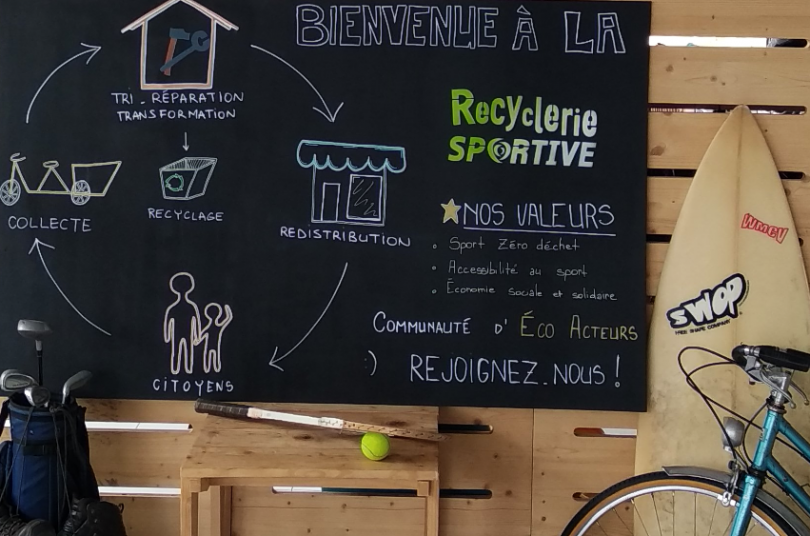 BIENVENUE À LA
TRI _ RÉPARATION
TRANSFORMATION
Recyclerie
SPORTIVE
COLLECTE
RECYCLAGE
REDISTRIBUTION
NOS VALEURS
Sport Zéro déchet
Accessibilité au sport
Économie sociale et solidaire
COMMUNAUTÉ D' ÉCO ACTEURS
:) REJOIGNEZ_NOUS !
CITOYENS
SWOP
FREE SHAPE COMPANY